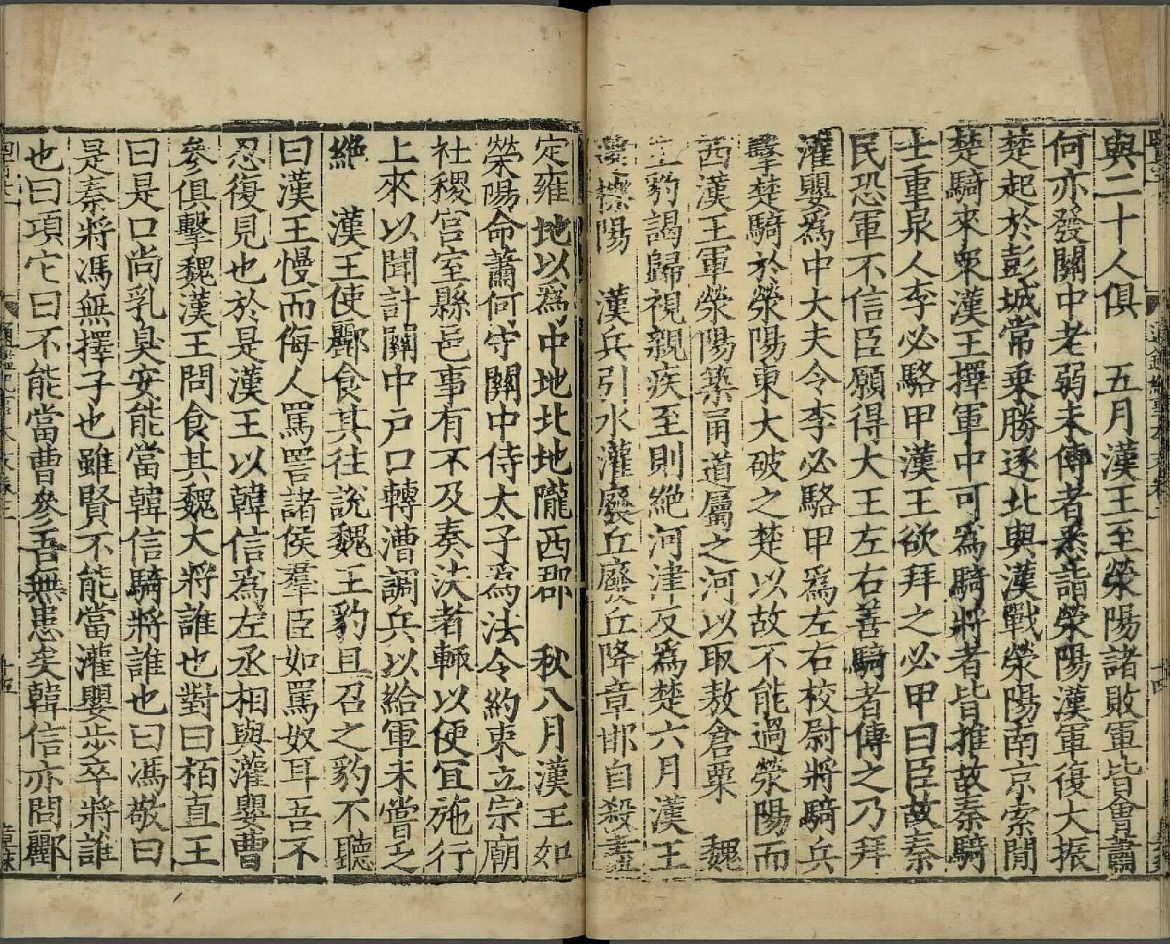 與二十人俱　五月漢王至滎陽諸敗軍皆會蕭
何亦發關中老弱未傅者悉詣滎陽漢軍復大振
楚起於彭城常乗勝逐北與漢戰滎陽南京索閒
楚騎來衆漢王擇軍中可爲騎將者皆推故秦騎
士重泉人李必駱甲漢王欲拜之必甲曰臣故秦
民恐軍不信臣願得大王左右善騎者傅之乃拜
灌嬰爲中大夫令李必駱甲爲左右校尉將騎兵
擊楚騎於滎陽東大破之楚以故不能過滎陽而
西漢王軍滎陽築甬道屬之河以取敖倉粟　魏
王豹謁歸視親疾至則絶河津反爲楚六月漢王
還櫟陽　漢兵引水灌廢丘廢丘降章邯自殺盡
定雍地以爲中地北地隴西郡　秋八月漢王如
滎陽命蕭何守關中侍太子爲法令約束立宗廟
社稷宫室縣邑事有不及奏決者輒以便宜施行
上來以聞計關中戸口轉漕調兵以給軍未嘗乏
絶　漢王使酈食其往說魏王豹且召之豹不聽
曰漢王慢而侮人罵詈諸侯羣臣如罵奴耳吾不
忍復見也於是漢王以韓信爲左丞相與灌嬰曹
參俱擊魏漢王問食其魏大將誰也對曰栢直王
曰是口尚乳臭安能當韓信騎將誰也曰馮敬曰
是秦將馮無擇子也雖賢不能當灌嬰步卒將誰
也曰項它曰不能當曹參吾無患矣韓信亦問酈